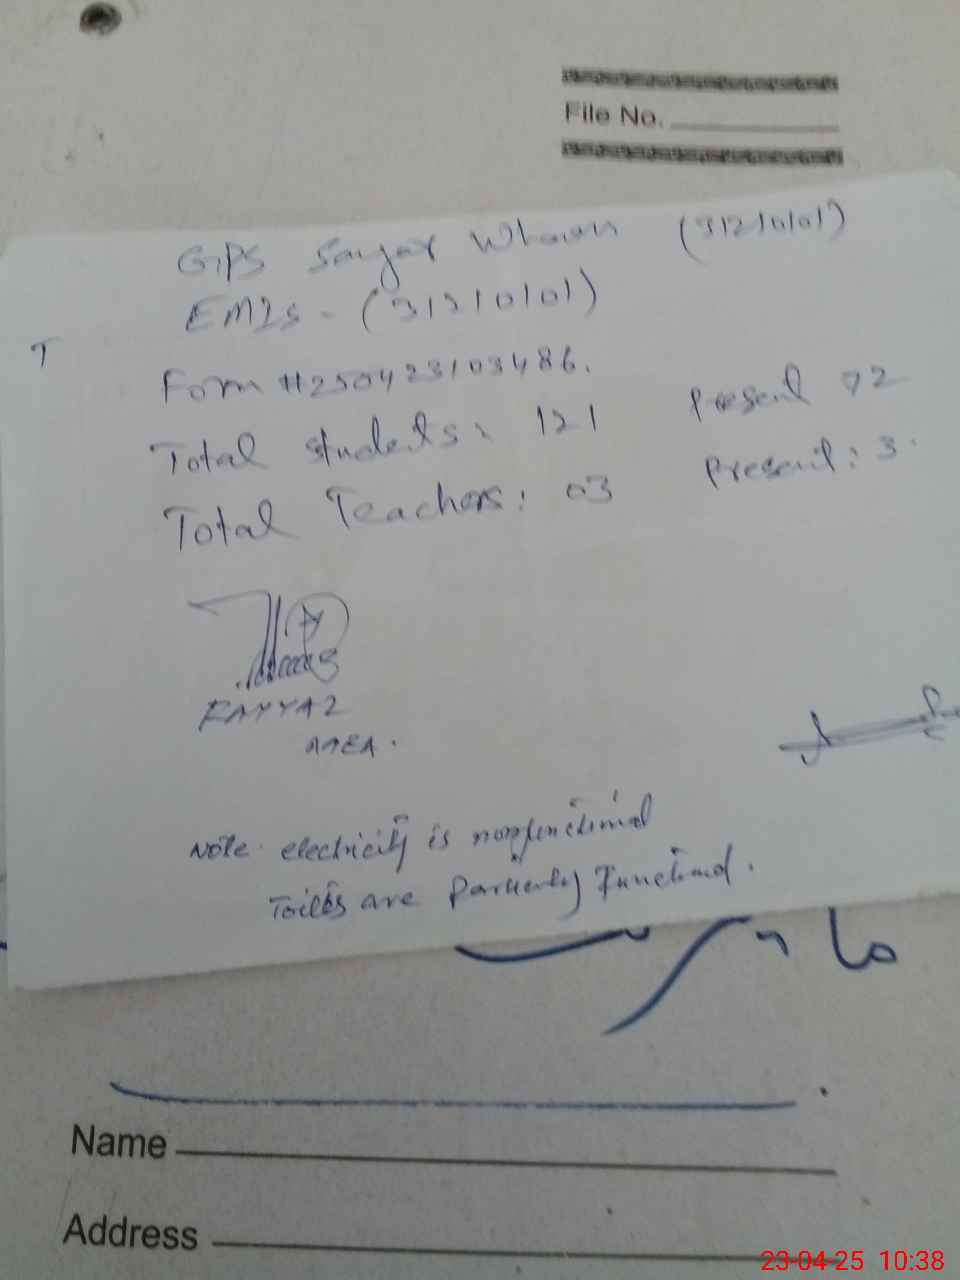 File No.
GPS Sanjar Whoun (31210101)
EMIS - (31210101)
T
Form #250423103486.
Total Students: 121 Present 72
Total Teachers: 03 Present: 3.
FAYYAZ
AAEA.
Note. electricity is nonfunctional
Toilets are Partially Functional.
Name
Address
23-04-25 10:38